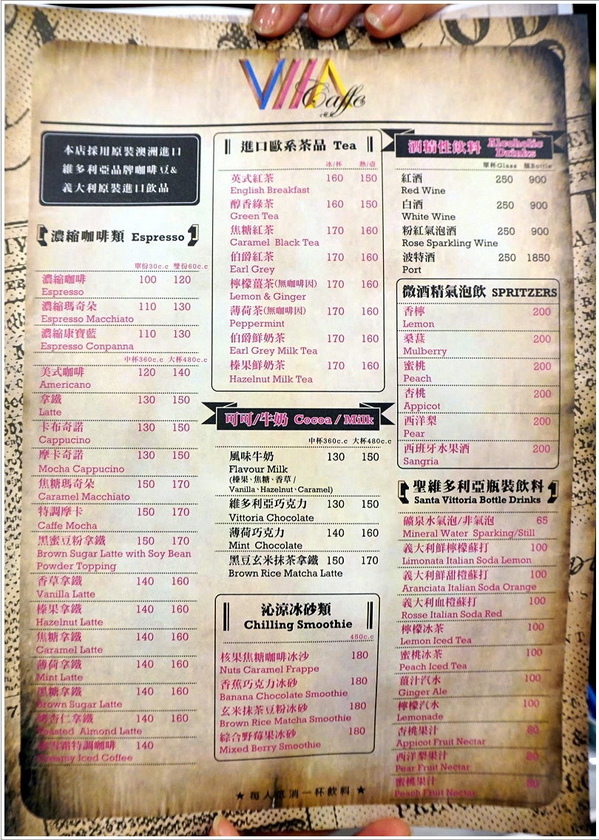 VIIIA Caffe
本店採用原裝澳洲進口
維多利亞品牌咖啡豆&
義大利原裝進口飲品
濃縮咖啡類 Espresso
單份30c.c 雙份60c.c
濃縮咖啡 100 120
Espresso
濃縮瑪奇朵 110 130
Espresso Macchiato
濃縮康寶藍 110 130
Espresso Conpanna
中杯360c.c 大杯480c.c
美式咖啡 120 140
Americano
拿鐵 130 150
Latte
卡布奇諾 130 150
Cappucino
摩卡奇諾 130 150
Mocha Cappucino
焦糖瑪奇朵 150 170
Caramel Macchiato
特調摩卡 150 170
Caffe Mocha
黑蜜豆粉拿鐵 150 170
Brown Sugar Latte with Soy Bean
Powder Topping
香草拿鐵 140 160
Vanilla Latte
榛果拿鐵 140 160
Hazelnut Latte
焦糖拿鐵 140 160
Caramel Latte
薄荷拿鐵 140 160
Mint Latte
黑糖拿鐵 140 160
Brown Sugar Latte
杏仁拿鐵 140 160
Roasted Almond Latte
特調咖啡 140
Creamy Iced Coffee
進口歐系茶品 Tea
冰/杯 熱/壺
英式紅茶 160 150
English Breakfast
醇香綠茶 160 150
Green Tea
焦糖紅茶 170 160
Caramel Black Tea
伯爵紅茶 170 160
Earl Grey
檸檬薑茶(無咖啡因) 170 160
Lemon & Ginger
薄荷茶(無咖啡因) 170 160
Peppermint
伯爵鮮奶茶 170 160
Earl Grey Milk Tea
榛果鮮奶茶 170 160
Hazelnut Milk Tea
可可/牛奶 Cocoa / Milk
中杯360c.c 大杯480c.c
風味牛奶 130 150
Flavour Milk
(榛果、焦糖、香草/
Vanilla、Hazelnut、Caramel)
維多利亞巧克力 130 150
Vittoria Chocolate
薄荷巧克力 140 160
Mint Chocolate
黑豆玄米抹茶拿鐵 150 170
Brown Rice Matcha Latte
沁涼冰砂類
Chilling Smoothie
450c.c
核果焦糖咖啡冰沙 180
Nuts Caramel Frappe
香蕉巧克力冰砂 180
Banana Chocolate Smoothie
玄米抹茶豆粉冰砂 180
Brown Rice Matcha Smoothie
綜合野莓果冰砂 180
Mixed Berry Smoothie
酒精性飲料 Alcoholic Drinks
單杯Glass 瓶Bottle
紅酒 250 900
Red Wine
白酒 250 900
White Wine
粉紅氣泡酒 250 900
Rose Sparkling Wine
波特酒 250 1850
Port
微酒精氣泡飲 SPRITZERS
香檸 200
Lemon
桑葚 200
Mulberry
蜜桃 200
Peach
杏桃 200
Appicot
西洋梨 200
Pear
西班牙水果酒 200
Sangria
聖維多利亞瓶裝飲料
Santa Vittoria Bottle Drinks
礦泉水氣泡/非氣泡 65
Mineral Water Sparking/Still
義大利鮮檸檬蘇打 100
Limonata Italian Soda Lemon
義大利鮮甜橙蘇打 100
Aranciata Italian Soda Orange
義大利血橙蘇打 100
Rosse Italian Soda Red
檸檬冰茶 100
Lemon Iced Tea
蜜桃冰茶 100
Peach Iced Tea
薑汁汽水 100
Ginger Ale
檸檬汽水 100
Lemonade
杏桃果汁 80
Appicot Fruit Nectar
西洋梨果汁 80
Pear Fruit Nectar
蜜桃果汁 80
Peach Fruit Nectar
★ 每人低消一杯飲料 ★